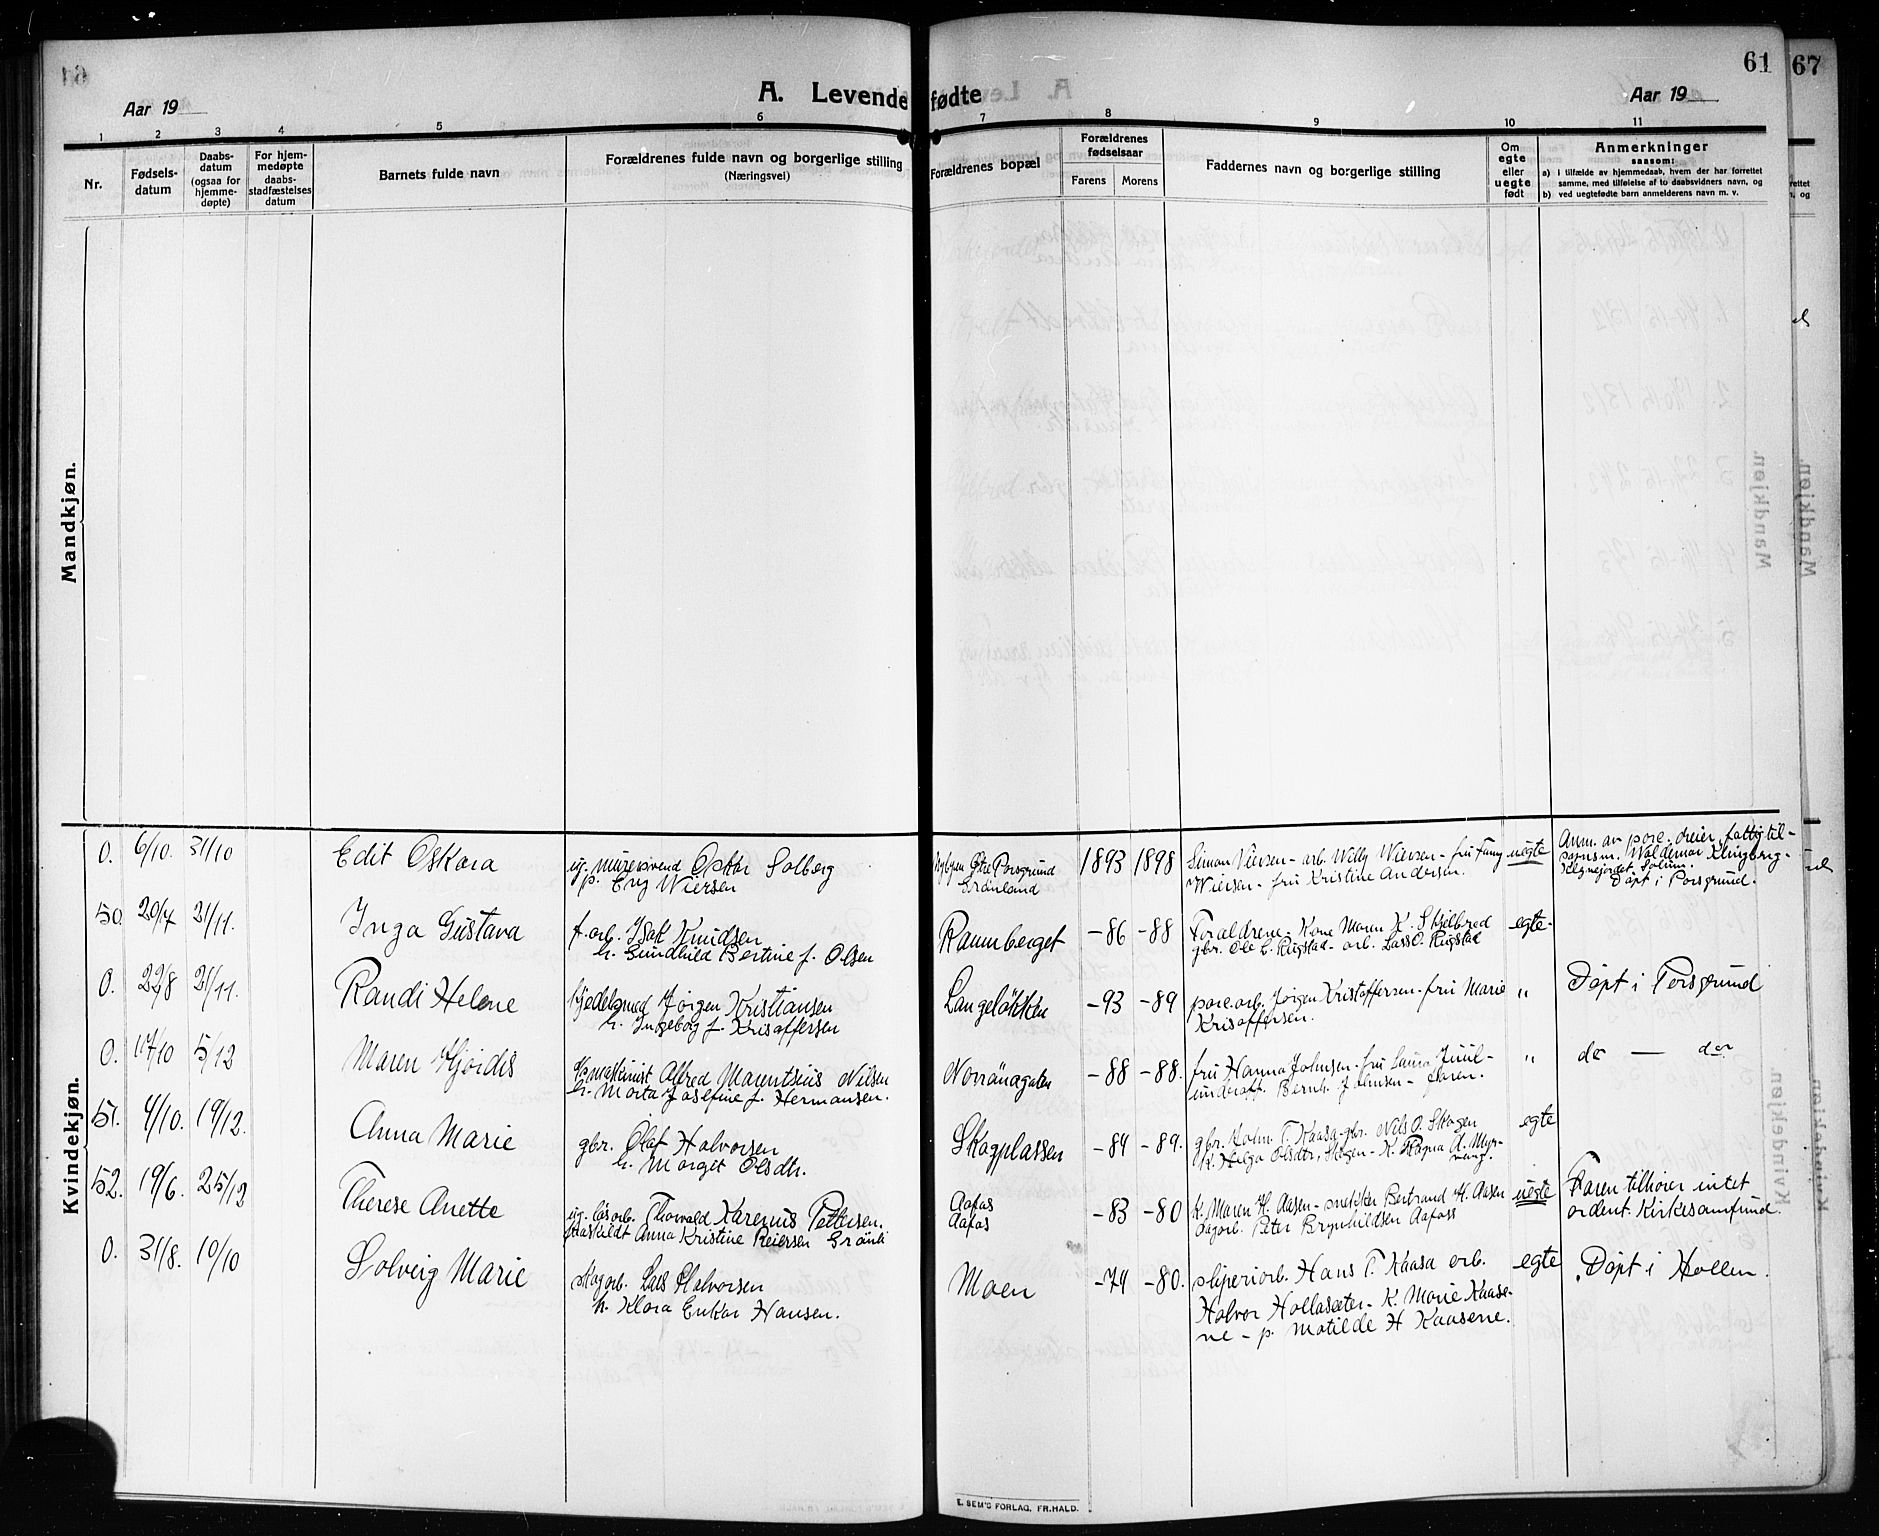 61
67
Aar 19
A. Levende fødte
Aar 19
1 2 3 4 5 6 7 8 9 10 11
Nr.
Fødsels-
datum
Daabs-
datum
(ogsaa for
hjemme-
døpte)
For hjem-
medøpte
daabs-
stadfæstelses
datum
Barnets fulde navn
Forældrenes fulde navn og borgerlige stilling
(Næringsvei)
Forældrenes bopæl
Forældrenes
fødselsaar
Farens
Morens
Faddernes navn og borgerlige stilling
Om
egte
eller
uegte
født
Anmerkninger
saasom:
a) I tilfælde av hjemmedaab, hvem der har forrettet
samme, med tilføielse af to daabsvidners navn, og
b) ved uegtefødte barn anmelderens navn m. v.
Mandkjøn.
Kvindekjøn.
0. 6/10. 31/10 Edit Oskara
ug. Oskar Solberg
p. Eng Wiersen
Østre Porsgrund
Grönland
1893 1898
Simon Wiersen - arb. Willy Wiersen - fru Fanny
Wiersen - fru Kristine Andersen.
uegte
Anm. av porc. dreier, fattigtil-
synsm. Waldemar Klingberg -
Klynejordet - Solum.
Döpt i Porsgrund.
50. 20/7 21/11. Inga Gustava
f. arb. Isak Knudsen
h. Gundhild Bertine f. Olsen
Ramberget
-86 -88
Forældrene - Kone Maren K. Skjelbred
gbr. Ole L. Rugstad - arb. Lars O. Rugstad
egte -
0. 22/8 21/11. Randi Helene
Jörgen Kristiansen
h. Ingeborg f. Krisoffersen
Langeløkken
-93 -89
porc. arb. Jörgen Kristoffersen - fru Marie
Krisoffersen.
"
Döpt i Porsgrund
0. 17/10 5/12 Maren Hjördis
Alfred Marentsius Nilsen
h. Marta Josefine f. Hermansen.
Norrönagaten
-88 -88.
fru Hanna Johnsen - fru Laura Juul -
underoff. Bernh. Johnsen - faren.
"
do — do
51. 4/10. 19/12. Anna Marie
gbr. Olaf Halvorsen
h. Marget Olsdtr.
Skogplassen
-84 -89.
gbr. John T. Kaasa - gbr. Nils O. Skogen
K. Helga Olsdtr. Skogen - K. Ragna A. Myr-
egte
52. 19/6. 25/12 Therese Anette
ug. løsarb. Thorvald Karenius Pettersen.
Anna Kristine Reiersen Grönli
Aafos
Aafos
-83 -80
K. Maren H. Aasen - snekker Bertrand H. Aasen
dagarb. Peter Brynhildsen Aafoss
uegte
Faren tilhører intet
ordent. Kirkesamfund.
0. 31/8. 10/10 Solveig Marie
skogarb. Lars Halvorsen
h. Klara Enkar Hansen.
Moen
-74 -80.
sliperiarb. Hans T. Kaasa arb.
Halvor Hollasæter - K. Marie Kaase-
ne - p. Matilde H Kaasene.
egte
Döpt i Hollen.
E. SEM'S FORLAG, FR.HALD.